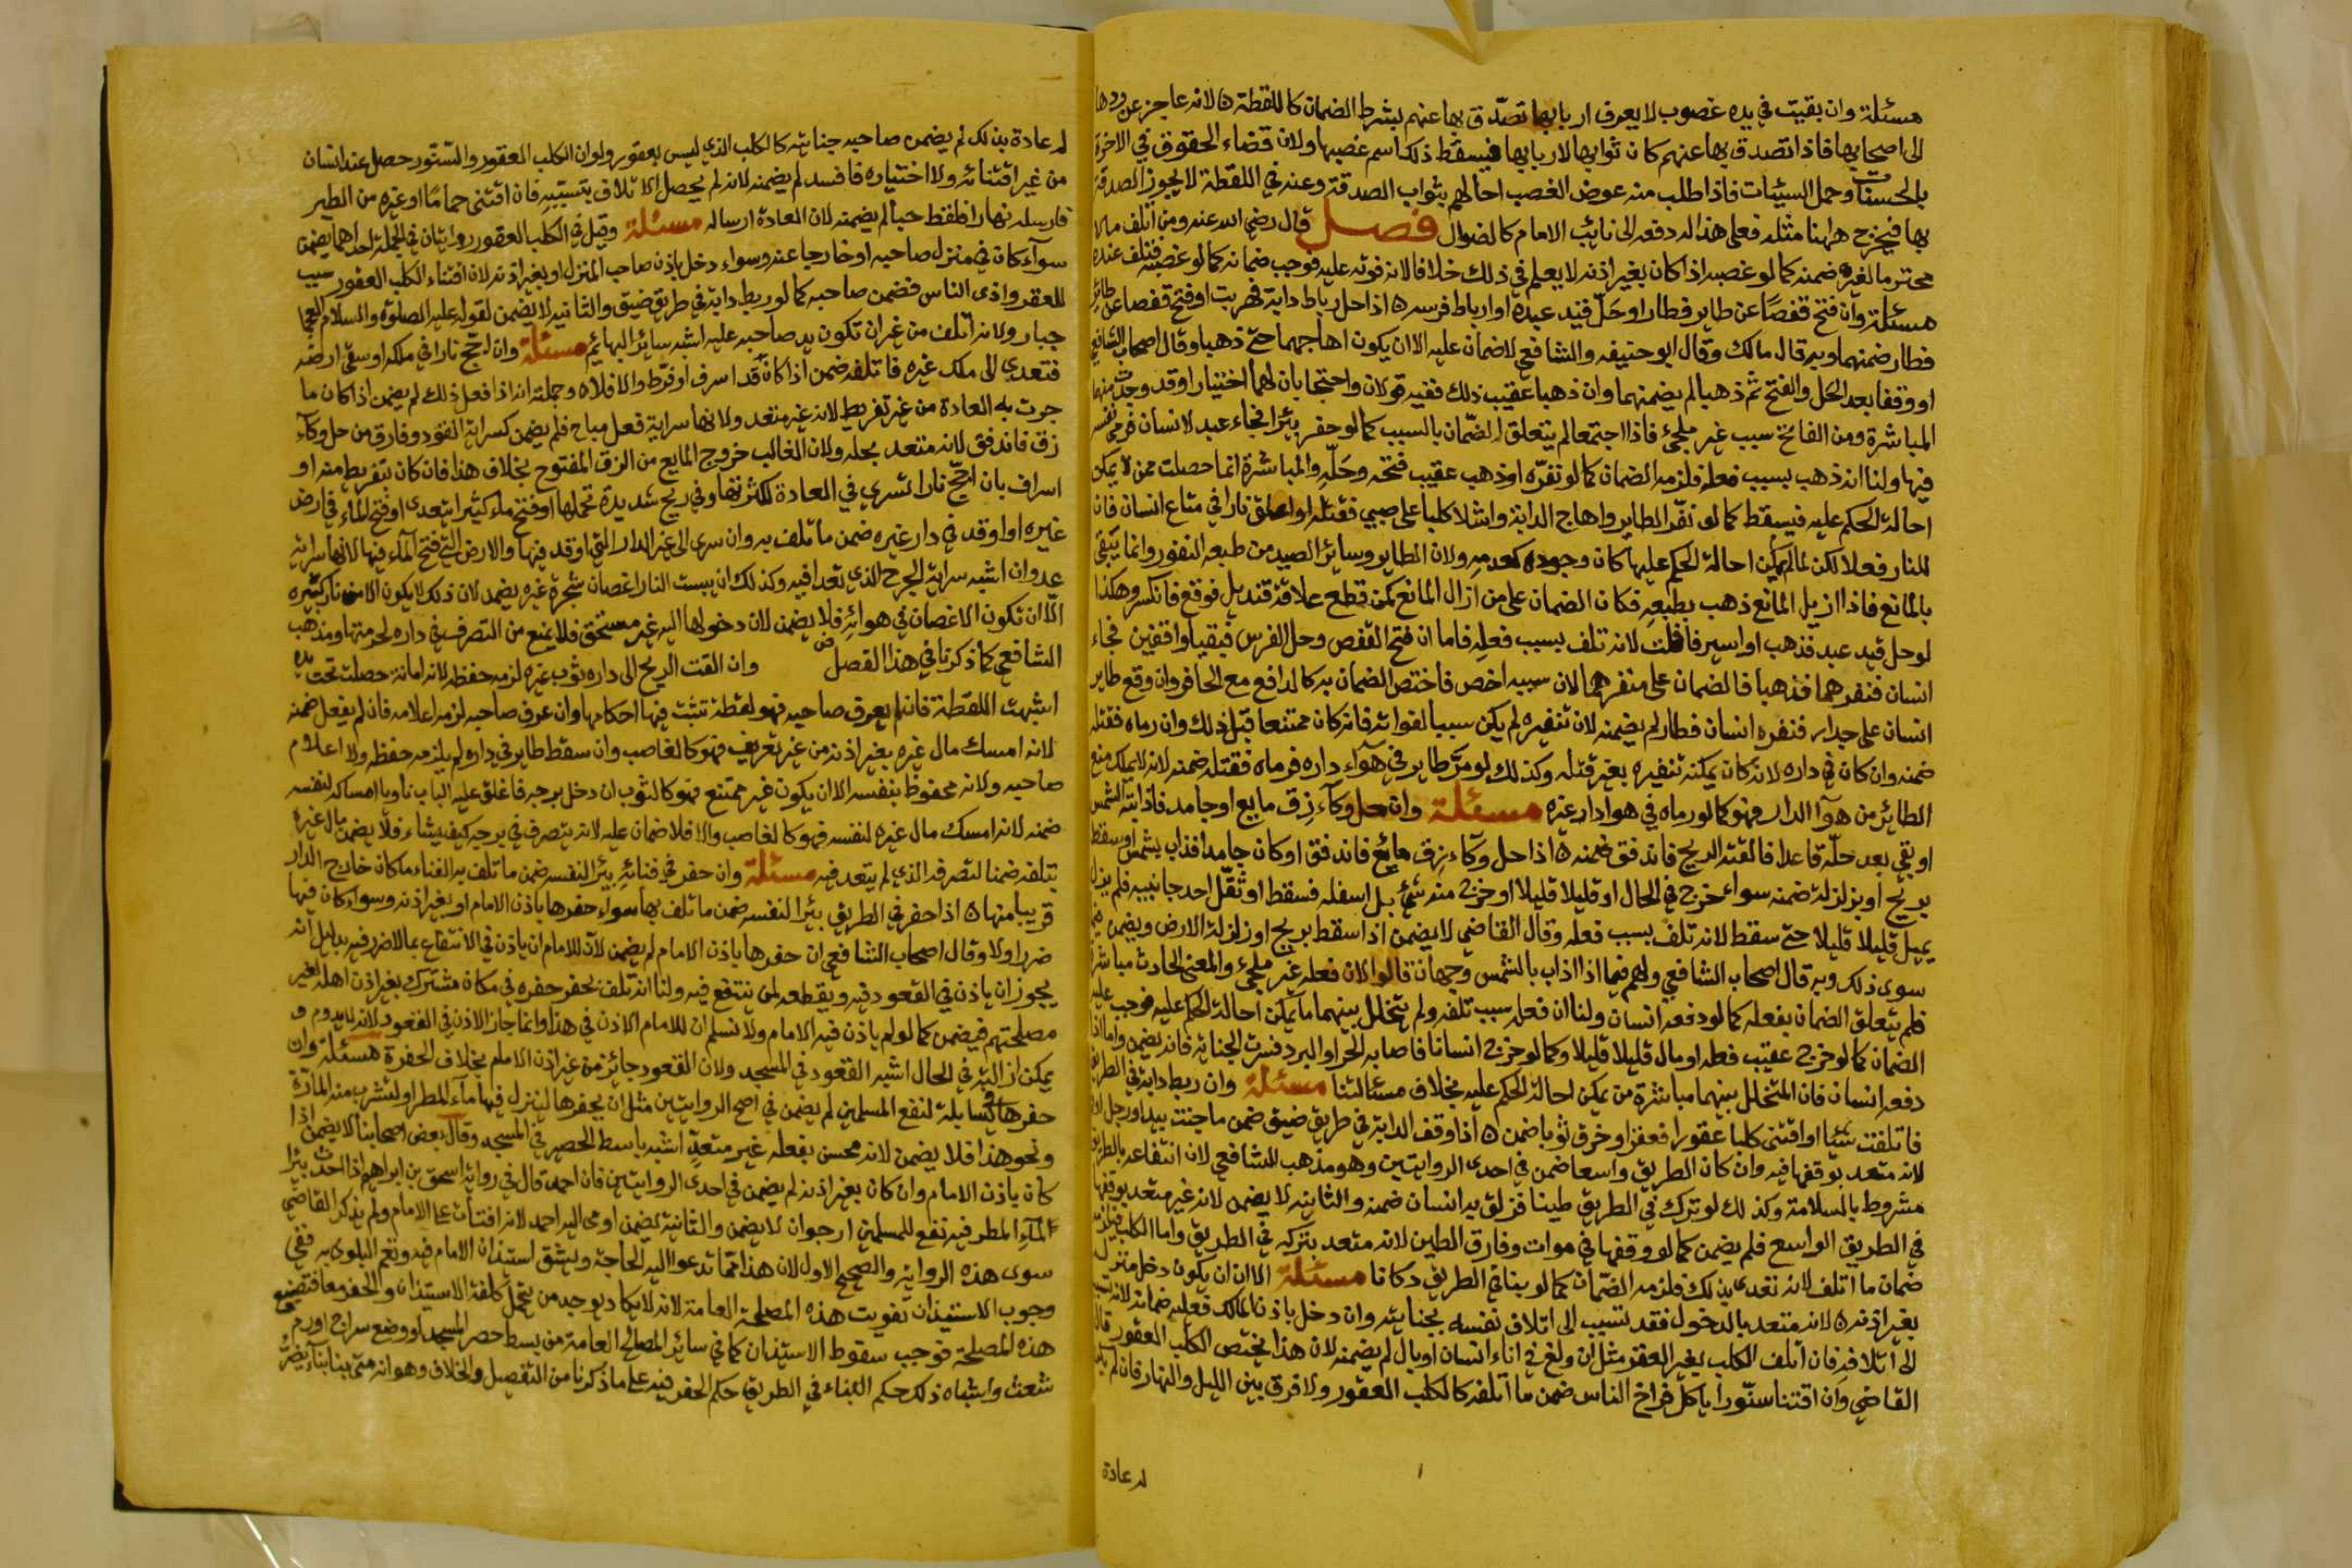 مسئلة وان بقيت في يده غصوب لا يعرف اربابها تصدق بها عنهم بشرط الضمان كاللقطة ه لانه عاجز عن ردها
الى اصحابها فاذا تصدق بها عنهم كان ثوابها لاربابها فيسقط ذلك اسم غصبها ولان قضاء الحقوق في الاخرة
بالحسنات وحمل السيئات فاذا طلب منه عوض الغصب احالهم بثواب الصدقة وعنه في اللقطة لا يجوز الصدقة
بها فيخرج هاهنا مثله فعلى هذا له دفعه الى نائب الامام كالضوال فصل قال رضي الله عنه ومن اتلف مالا
محترما لغيره ضمنه كما لو غصبه اذا كان بغير اذنه لا يعلم في ذلك خلافا لانه فوته عليه فوجب ضمانه كما لو غصبه فتلف عنده
مسئلة وان فتح قفصا عن طاير فطار او حل قيد عبده او ارباط فرسه ه اذا حل رباط دابة فهربت او فتح قفصا عن طائر
فطار ضمنهما وبه قال مالك وقال ابو حنيفه والشافعي لا ضمان عليه الا ان يكون اهاجهما حتى ذهبا وقال اصحاب الشافعي
او وقفا بعد الحل والفتح ثم ذهبا لم يضمنهما وان ذهبا عقيب ذلك ففيه قولان واحتجا بان لهما اختيارا وقد وجدت منهما
المباشرة ومن الفاتح سبب غير ملجئ فاذا اجتمعا لم يتعلق الضمان بالسبب كما لو حفر بئرا فجاء عبد لانسان فرمى نفسه
فيها ولنا انه ذهب بسبب فعله فلزمه الضمان كما لو نفره او ذهب عقيب فتحه وحله والمباشرة انما حصلت ممن لا يمكن
احالة الحكم عليه فيسقط كما لو نفر الطاير واهاج الدابة واشلا كلبا على صبي فقتله او اطلق نارا في متاع انسان فان
للنار فعلا لكن لما لم يمكن احالة الحكم عليها كان وجوده كعدمه ولان الطاير وسائر الصيد من طبعه النفور وانما يبقى
بالمانع فاذا ازيل المانع ذهب بطبعه فكان الضمان على من ازال المانع كمن قطع علاقة قنديل فوقع فانكسر وهكذا
لو حل قيد عبد فذهب او اسير فافلت لانه تلف بسبب فعله فاما ان فتح القفص وحل الفرس فبقيا واقفين فجاء
انسان فنفرهما فذهبا فالضمان على منفرهما لان سببه اخص فاختص الضمان به كالدافع مع الحافر وان وقع طاير
انسان على جدار فنفره انسان فطار لم يضمنه لان تنفيره لم يكن سببا لفواته فانه كان ممتنعا قبل ذلك وان رماه فقتله
ضمنه وان كان في داره لانه كان يمكنه تنفيره بغير قتله وكذلك لو مر طاير في هواء داره فرماه فقتله ضمنه لانه لا يملك منع
الطائر من هوآ الدار فهو كما لو رماه في هوا دار غيره مسئلة وان حل وكآء زق مايع او جامد فاذابته الشمس
او بقي بعد حله قاعدا فالقته الريح فاندفق ضمنه ه اذا حل وكاء زق مايع فاندفق او كان جامدا فذاب بشمس او سقط
بريح او بزلزلة ضمنه سواء خرج في الحال او قليلا قليلا او خرج منه شئ بل اسفله فسقط او ثقل احد جانبيه فلم يزل
يميل قليلا قليلا حتى سقط لانه تلف بسبب فعله وقال القاضي لا يضمن اذا سقط بريح او زلزلة الارض ويضمن فيما
سوى ذلك وبه قال اصحاب الشافعي ولهم فيما اذا اذاب بالشمس وجهان قالوا لان فعله غير ملجئ والمعنى الحادث مباشرة
فلم يتعلق الضمان بفعله كما لو دفعه انسان ولنا ان فعله سبب تلفه ولم يتخلل بينهما ما يمكن احالة الحكم عليه فوجب عليه
الضمان كما لو خرج عقيب فعله او مال قليلا قليلا وكما لو جرح انسانا فاصابه الحر او البرد فسرت الجناية فانه يضمن واما اذا
دفعه انسان فان المتخلل بينهما مباشرة من يمكن احالة الحكم عليه بخلاف مسئالتنا مسئلة وان ربط دابة في الطريق
فاتلفت شيئا او اقتنى كلبا عقورا فعقر او خرق ثوبا ضمن ه اذا وقف الدابة في طريق ضيق ضمن ما جنت بيد او رجل او
لانه متعد بوقفها فيه وان كان الطريق واسعا ضمن في احدى الروايتين وهو مذهب الشافعي لان انتفاعه بالطريق
مشروط بالسلامة وكذلك لو ترك في الطريق طينا فزلق به انسان ضمنه والثانيه لا يضمن لانه غير متعد بوقفها
في الطريق الواسع فلم يضمن كما لو وقفها في موات وفارق الطين لانه متعد بتركه في الطريق واما الكلب فيلزمه
ضمان ما اتلف لانه تعدى بذلك فلزمه الضمان كما لو بنا في الطريق دكانا مسئلة الا ان يكون دخل منزل
بغير اذنه ه لانه متعد بالدخول فقد تسبب الى اتلاف نفسه بجنايته وان دخل باذن المالك فعليه ضمانه لانه تسبب
الى اتلافه فان اتلف الكلب بغير العقر مثل ان ولغ في اناء انسان او بال لم يضمنه لان هذا لا يختص الكلب العقور قال
القاضي وان اقتنا سنورا ياكل فراخ الناس ضمن ما اتلفه كالكلب العقور ولا فرق بين الليل والنهار فان لم يكن
له عادة
له عادة بذلك لم يضمن صاحبه جنايته كالكلب الذي ليس بعقور ولو ان الكلب العقور والسنور حصل عند انسان
من غير اقتنائه ولا اختياره فافسد لم يضمنه لانه لم يحصل الاتلاف بتسببه فان اقتنى حماما او غيره من الطير
فارسله نهارا فلقط حبا لم يضمنه لان العادة ارساله مسئلة وقيل في الكلب العقور روايتان في الجملة احداهما يضمن
سوآء كان في منزل صاحبه او خارجا عنه وسواء دخل باذن صاحب المنزل او بغير اذنه لان اقتناء الكلب العقور سبب
للعقر واذى الناس فضمن صاحبه كما لو ربط دابة في طريق ضيق والثانيه لا يضمن لقوله عليه الصلوة والسلام العجما
جبار ولانه اتلف من غير ان تكون يد صاحبه عليه اشبه سائر البهائم مسئلة وان اجج نارا في ملكه او سقى ارضه
فتعدى الى ملك غيره فاتلفه ضمن اذا كان قد اسرف او فرط والا فلا ه وجملته انه اذا فعل ذلك لم يضمن اذا كان ما
جرت به العادة من غير تفريط لانه غير متعد ولانها سراية فعل مباح فلم يضمن كسراية القود وفارق من حل وكآء
زق فاندفق لانه متعد بحله ولان الغالب خروج المايع من الزق المفتوح بخلاف هذا فان كان بتفريط منه او
اسراف بان اجج نارا تسري في العادة لكثرتها وفي ريح شديدة تحملها او فتح ماء كثيرا يتعدى او فتح الماء في ارض
غيره او اوقد في دار غيره ضمن ما تلف به وان سرى الى غير الدار التي اوقد فيها والارض التي فتح المآء فيها لانها سراية
عدوان اشبه سراية الجرح الذي تعدا فيه وكذلك ان يبست النار اغصان شجرة غيره يضمن لان ذلك لا يكون الا من نار كثيره
الا ان تكون الاغصان في هوائه فلا يضمن لان دخولها اليه غير مستحق فلا يمنع من التصرف في داره لحرمتها ومذهب
الشافعي كما ذكرنا في هذا الفصل وان القت الريح الى داره ثوب غيره لزمه حفظه لانه امانة حصلت تحت يده
اشبهت اللقطة فان لم يعرف صاحبه فهو لقطة تثبت فيها احكامها وان عرف صاحبه لزمه اعلامه فان لم يفعل ضمنه
لانه امسك مال غيره بغير اذنه من غير تعريف فهو كالغاصب وان سقط طاير في داره لم يلزمه حفظه ولا اعلام
صاحبه ولانه محفوظ بنفسه الا ان يكون غير ممتنع فهو كالثوب ان دخل برجه فاغلق عليه الباب ناويا امساكه لنفسه
ضمنه لانه امسك مال غيره لنفسه فهو كالغاصب والا فلا ضمان عليه لانه يتصرف في برجه كيف يشاء فلا يضمن مال غيره
بتلفه ضمنا لتصرفه الذي لم يتعد فيه مسئلة وان حفر في فنائه بئرا لنفسه ضمن ما تلف به الفناء ما كان خارج الدار
قريبا منها ه اذا حفر في الطريق بئرا لنفسه ضمن ما تلف بها سواء حفرها باذن الامام او بغير اذنه وسواء كان فيها
ضررا ولا وقال اصحاب الشافعي ان حفرها باذن الامام لم يضمن لان للامام ان ياذن في الانتفاع بما لا ضرر فيه بدليل انه
يجوز ان ياذن في القعود فيه ويقطعه لمن ينتفع فيه ولنا انه تلف بحفر حفره في مكان مشترك بغير اذن اهله لغير
مصلحتهم فيضمن كما لو لم ياذن فيه الامام ولا نسلم ان للامام الاذن في هذا وانما جاز الاذن في القعود لانه لا يدوم و
يمكن ازالته في الحال اشبه القعود في المسجد ولان القعود جائز من غير اذن الامام بخلاف الحفرة مسئلة وان
حفرها في سابلة لنفع المسلمين لم يضمن في اصح الروايتين مثل ان يحفرها لينزل فيها مآء المطر او لتشرب منه المارة
ونحو هذا فلا يضمن لانه محسن بفعله غير متعد اشبه باسط الحصير في المسجد وقال بعض اصحابنا لا يضمن اذا
كان باذن الامام وان كان بغير اذنه لم يضمن في احدى الروايتين فان احمد قال في رواية اسحق بن ابراهيم اذا احدث بئرا
لمآء المطر فيه نفع للمسلمين ارجو ان لا يضمن والثانية يضمن اومى اليه احمد لانه افتئات على الامام ولم يذكر القاضي
سوى هذه الرواية والصحيح الاول لان هذا مما تدعوا اليه الحاجة ويشق استئذان الامام فيه وتعم البلوى به ففي
وجوب الاستيذان تفويت هذه المصلحة العامة لانه لا يكاد يوجد من يتحمل كلفة الاستيذان والحفر معا فتضيع
هذه المصلحة فوجب سقوط الاستيذان كما في سائر المصالح العامة من بسط حصر المسجد او وضع سراج او رم
شعث واشباه ذلك حكم البناء في الطريق حكم الحفر فيه على ما ذكرنا من التفصيل والخلاف وهو انه متى بنا بناء يضر